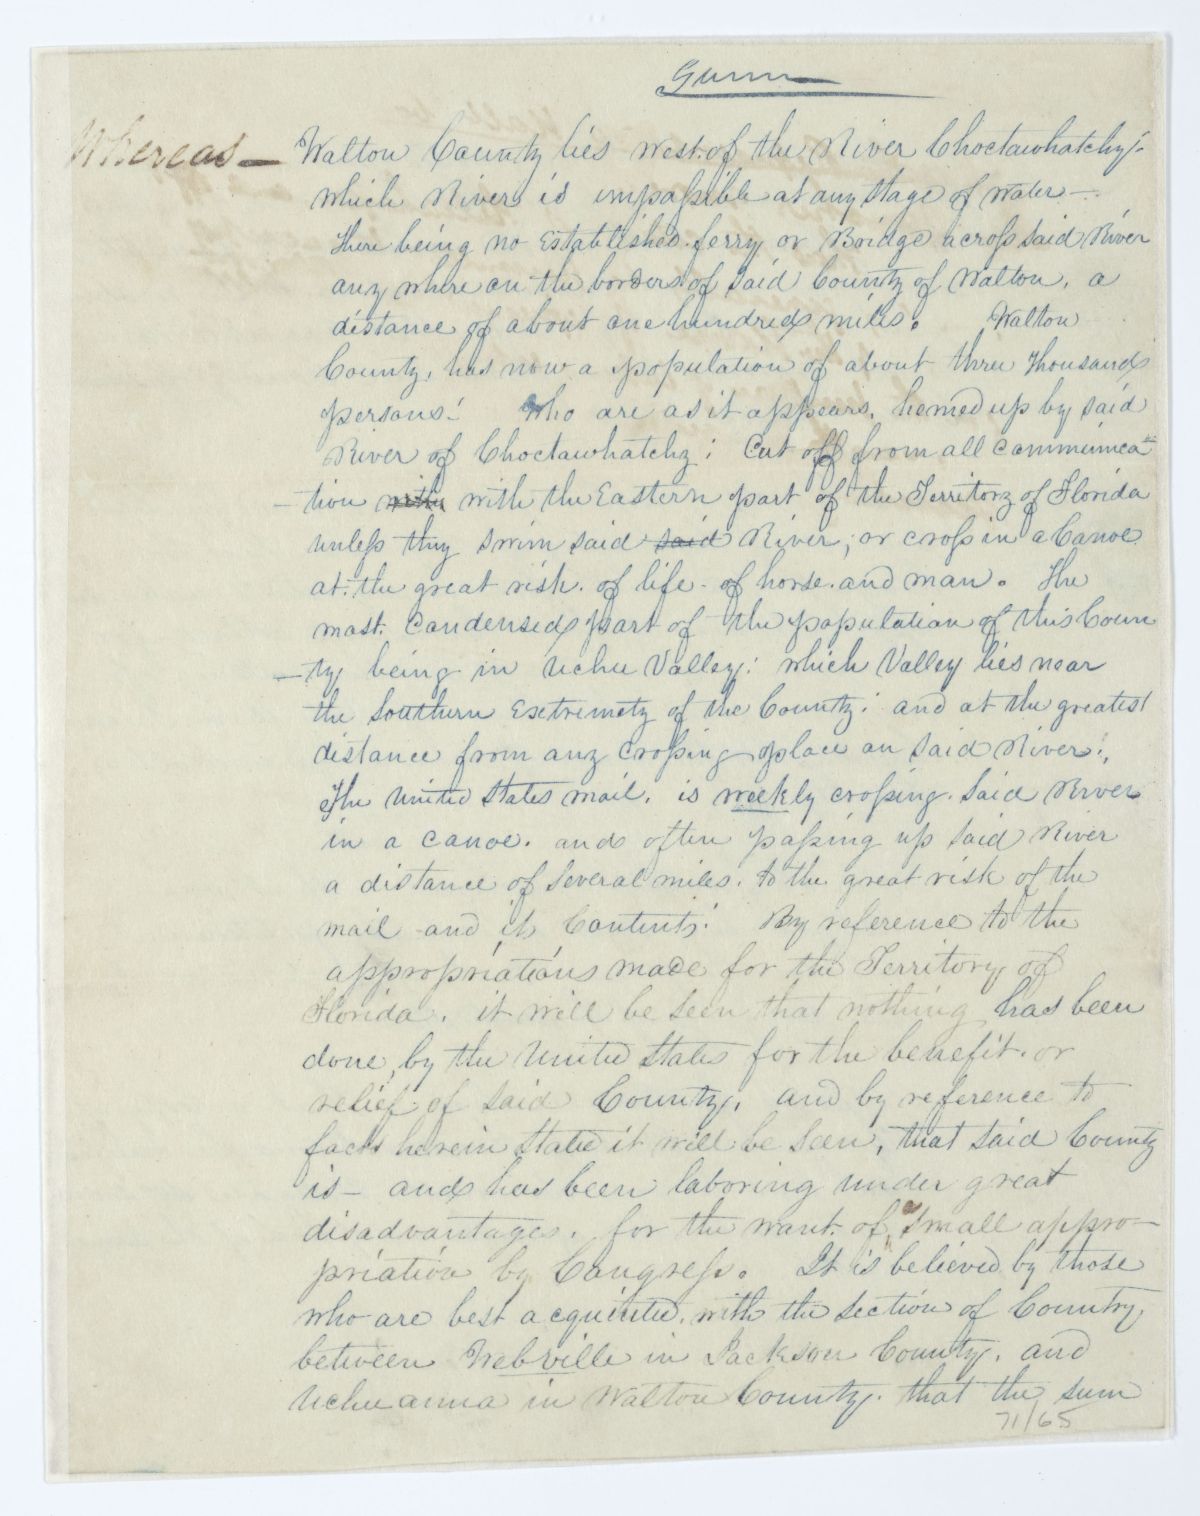 Gunn
Whereas — Walton County lies west of the River Choctawhatchy:
which River is impassible at any stage of water —
There being no Established ferry or Bridge across said River
any where on the borders of said County of Walton, a
distance of about one hundred miles. Walton
County, has now a population of about three thousand
persons! Who are as it appears, hemed up by said
River of Choctawhatchy; Cut off from all communica
-tion with with the Eastern part of the Territory of Florida
unless they swim said said River, or cross in a Canoe
at the great risk of life of horse and man. The
most Condensed part of the population of this Coun
-ty being in Uchee Valley: which Valley lies near
the Southern Exetremety of the County: and at the greatest
distance from any crossing place on said River;
The United States mail, is weekly crossing said River
in a canoe. and often passing up said River
a distance of several miles, to the great risk of the
mail and its Contents: By reference to the
appropriations made for the Territory of
Florida, it will be seen that nothing has been
done, by the United States for the benefit or
relief of said County, and by reference to
facts herein stated it will be seen, that said County
is — and has been laboring under great
disadvantages, for the want of a small appro-
priation by Congress. It is believed by those
who are best acquinted, with the section of Country
between Webville in Jackson County, and
Ucheeanna in Walton County. that the sum
71/65